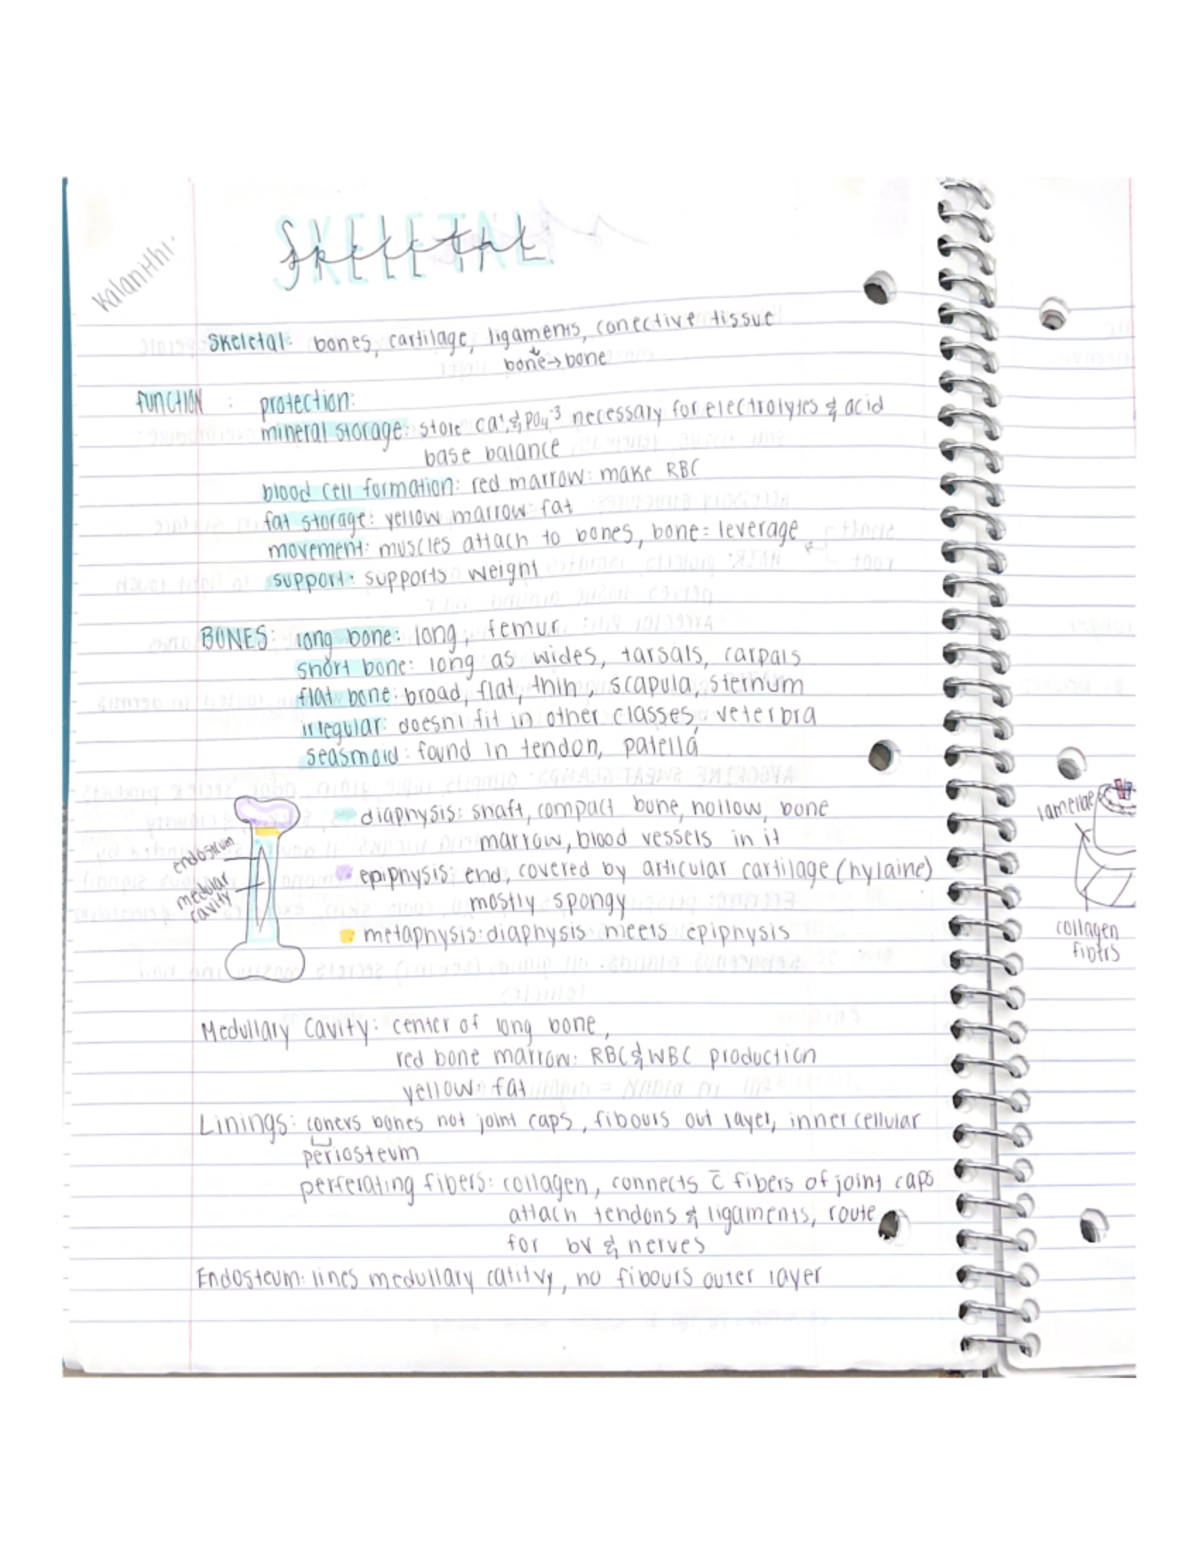 Kalanithi
SKELETAL
Skeletal: bones, cartilage, ligaments, conective tissue
bone→bone
FUNCTION: protection:
mineral storage: store ca⁺ & PO₄⁻³ necessary for electrolytes & acid
base balance
blood cell formation: red marrow: make RBC
fat storage: yellow marrow fat
movement: muscles attach to bones, bone = leverage
support: supports weight
BONES: long bone: long, femur
short bone: long as wides, tarsals, carpals
flat bone: broad, flat, thin, scapula, sternum
irregular: doesnt fit in other classes, veterbra
seasmoid: found in tendon, patella
diaphysis: shaft, compact bone, hollow, bone
marrow, blood vessels in it
epiphysis: end, covered by articular cartilage (hylaine)
mostly spongy
metaphysis: diaphysis meets epiphysis
endosteum
medular
cavity
Medullary Cavity: center of long bone,
red bone marrow: RBC & WBC production
yellow: fat
Linings: covers bones not joint caps, fibours out layer, inner cellular
periosteum
perferating fibers: collagen, connects c̄ fibers of joint caps
attach tendons & ligaments, route
for bv & nerves
Endosteum: lines medullary catitvy, no fibours outer layer
lamellae
collagen
fibers